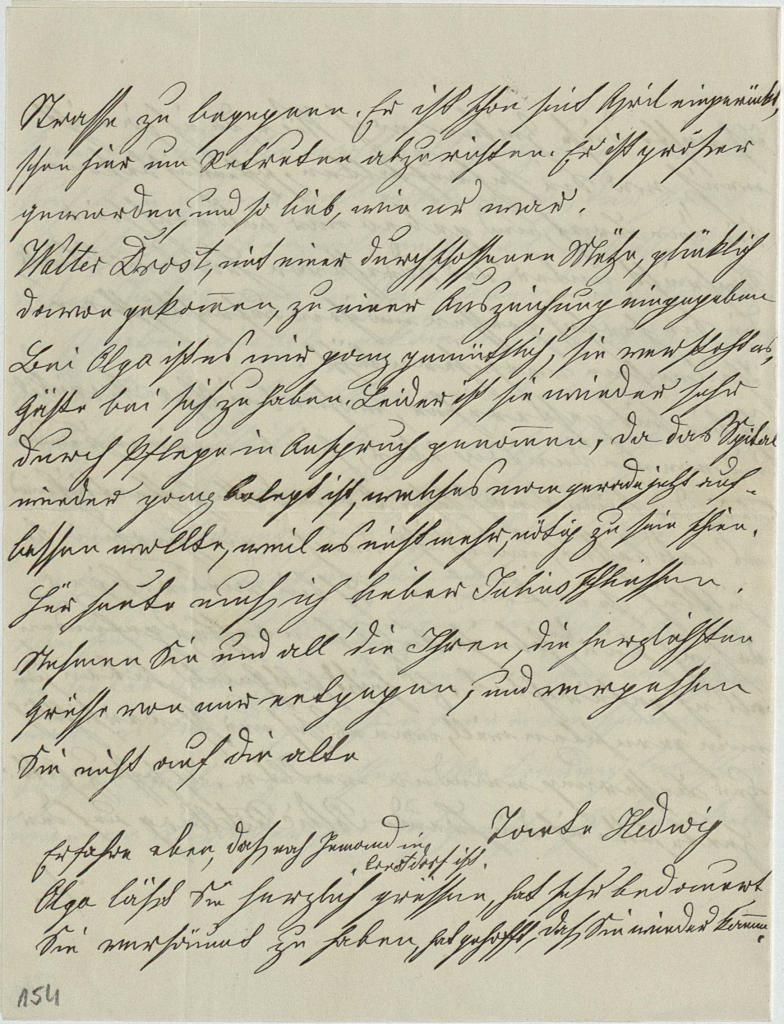 Strasse zu begegnen. Er ist schon seit April eingerückt,
schon hier um Rekruten abzurichten. Er ist größer
geworden, und so lieb, wie er war.
Walter Drost, mit einer durchschossenen Mütze, glücklich
davon gekommen, zu einer Auszeichnung eingegeben
Bei Olga ist es mir ganz gemüthlich, sie versteht es,
Gäste bei sich zu haben. Leider ist sie wieder sehr
durch Pflege in Anspruch genommen, da das Spital
wieder ganz belegt ist, welches man gerade jetzt auf-
lassen wollte, weil es nicht mehr nötig zu sein schien.
Für heute muß ich lieber Julius schliessen.
Nehmen Sie und all' die Ihren, die herzlichsten
Grüsse von mir entgegen, und vergessen
Sie nicht auf die alte
Tante Hedwig
Erfahre eben, daß noch Jemand in
ist.
Olga läßt Sie herzlich grüssen, hat sehr bedauert
Sie versäumt zu haben, hat gehofft, daß Sie wieder kommen.
154